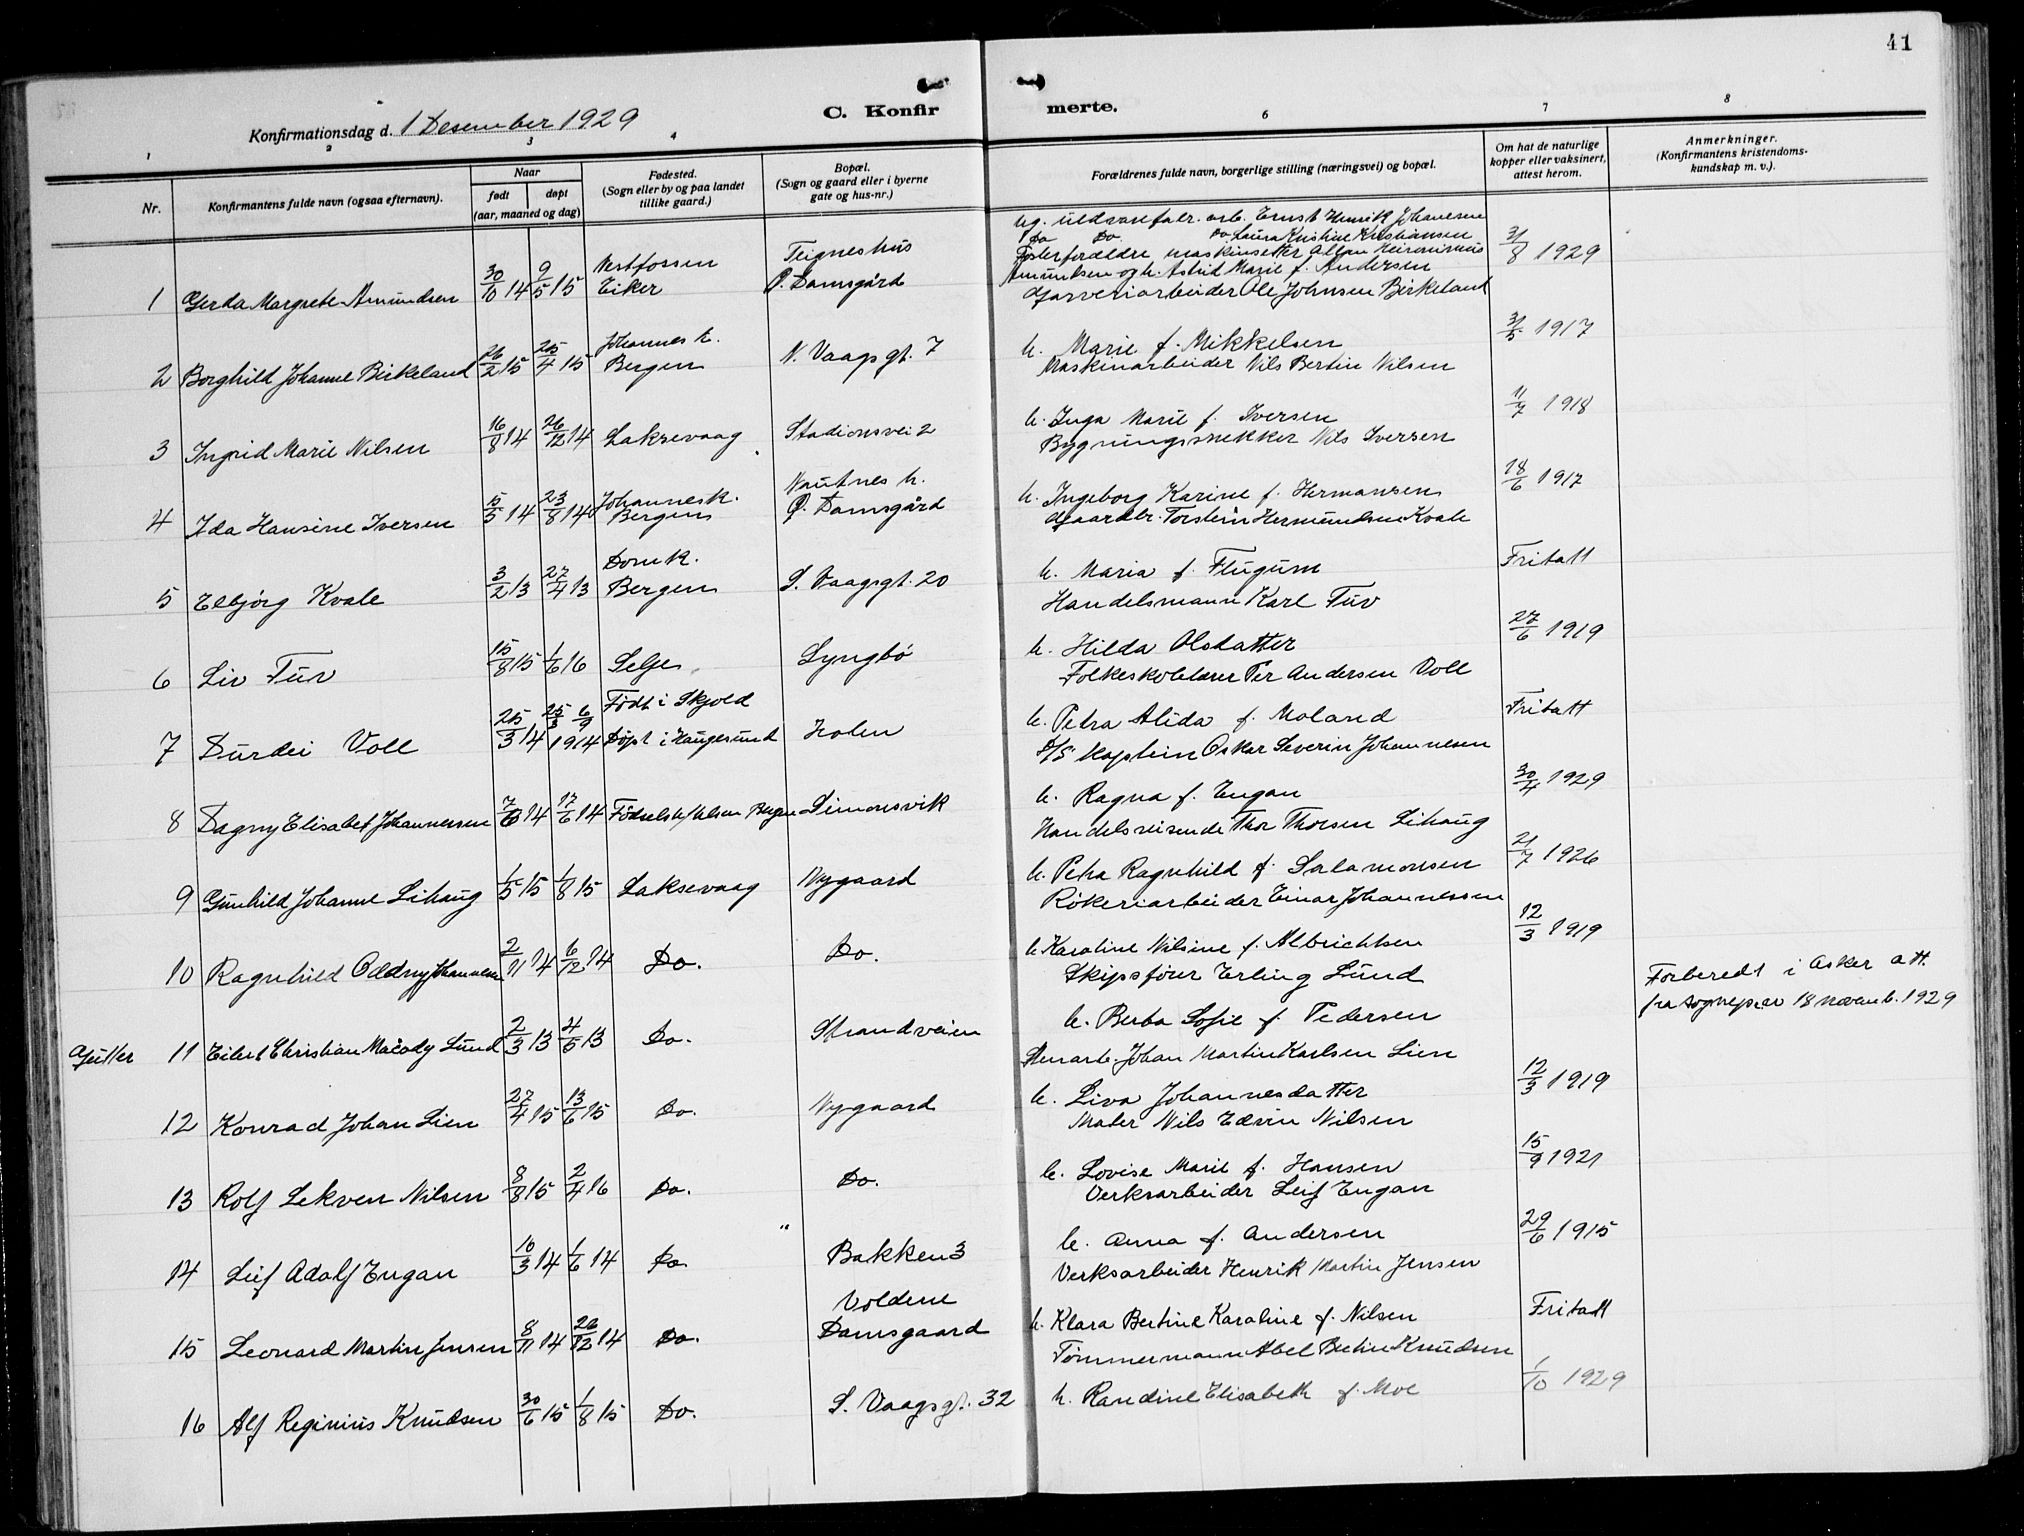 41
Konfirmationsdag d. 1 Desember 1929
C. Konfir
merte.
1 2 3 4 6 7 8
Nr.
Konfirmantens fulde navn (ogsaa efternavn).
Naar
født døpt
(aar, maaned og dag)
Fødested.
(Sogn eller by og paa landet
tillike gaard.)
Bopæl.
(Sogn og gaard eller i byerne
gate og hus-nr.)
Forældrenes fulde navn, borgerlige stilling (næringsvei) og bopæl.
Om hat de naturlige
kopper eller vaksinert,
attest herom.
Anmerkninger.
(Konfirmantens kristendoms-
kundskap m. v.).
Ug. uldvarefabr. arb. Ernst Henrik Johansen
Do Do Do Laura Kristine Kristiansen
Fosterforældre maskinsetter Allan Heironimus
Amundsen og h. Astrid Marie f. Andersen
1 Gerda Margrete Amundsen 30/10 14 9/5 15 Vestfossen Eiker Teigneshus Ø. Damsgård 31/8 1929
Garveriarbeider Ole Johnsen Birkeland
2 Borghild Johanne Birkeland 26/2 15 25/4 15 Johannes k. Bergen N. Vaagsgt. 7 h. Marie f. Mikkelsen 31/5 1917
Maskinarbeider Nils Bertin Nilsen
3 Ingrid Marie Nilsen 16/8 14 26/12 14 Laksevaag Stadionsvei 2 h. Inga Marie f. Iversen 11/7 1918
Bygningssnekker Nils Iversen
4 Ida Hansine Iversen 5/5 14 23/8 14 Johannesk. Bergen Nautnes h. Ø. Damsgård h. Ingeborg Karine f. Hermansen 18/6 1917
Gaardbr. Torstein Hermundsen Kvale
5 Elbjörg Kvale 3/2 13 27/4 13 Domk. Bergen S. Vaagsgt. 20 h. Maria f. Flugum Fritatt
Handelsmann Karl Tuv
6 Liv Tuv 15/8 15 1/6 16 Selje Lyngbö h. Hilda Olsdatter 27/6 1919
Folkeskolelærer Per Andersen Voll
7 Durdei Voll 25/3 14 25/3 6/9 1914 Født i Skjold Døpt i Haugesund Holen h. Petra Alida f. Moland Fritatt
D/S kaptein Oskar Severin Johannesen
8 Dagny Elisabet Johannessen 7/6 14 17/6 14 Bergen Simonsvik h. Ragna f. Engan 30/4 1929
Handelsreisende Thor Thorsen Lihaug
9 Gunhild Johanne Lihaug 1/5 15 1/8 15 Laksevaag Nygaard h. Petra Ragnhild f. Salamonsen 21/7 1926
Rökeriarbeider Einar Johannessen
10 Ragnhild Oddny Johannessen 2/11 14 6/12 14 Do. Do. h. Karoline Nilsine f. Albrichtsen 12/3 1919
Skipsförer Erling Lund
Gutter 11 Eilert Christian Macody Lund 2/3 13 4/5 13 Do. Strandveien h. Berta Sofie f. Pedersen Forberedt i Asker att.
fra sognepr. 18 novemb. 1929
Stenarb. Johan Martin Karlsen Lien
12 Konrad Johan Lien 27/4 15 13/6 15 Do. Nygaard h. Liva Johannesdatter 12/3 1919
Maler Nils Edvin Nilsen
13 Rolf Lekven Nilsen 8/8 15 2/4 16 Do. Do. h. Lovise Marie f. Hansen 15/9 1921
Verksarbeider Leif Engan
14 Leif Adolf Engan 10/3 14 1/6 14 Do " Bakken 3 h. Anna f. Andersen 29/6 1915
Verksarbeider Henrik Martin Jensen
15 Leonard Martin Jensen 8/11 14 26/12 14 Do. Voldene Damsgaard h. Klara Bertine Karoline f. Nilsen Fritatt
Tömmermann Abel Bertin Knudsen
16 Alf Reginius Knudsen 30/6 15 1/8 15 Do. S. Vaagsgt. 32 h. Randine Elisabeth f. Moe 1/10 1929